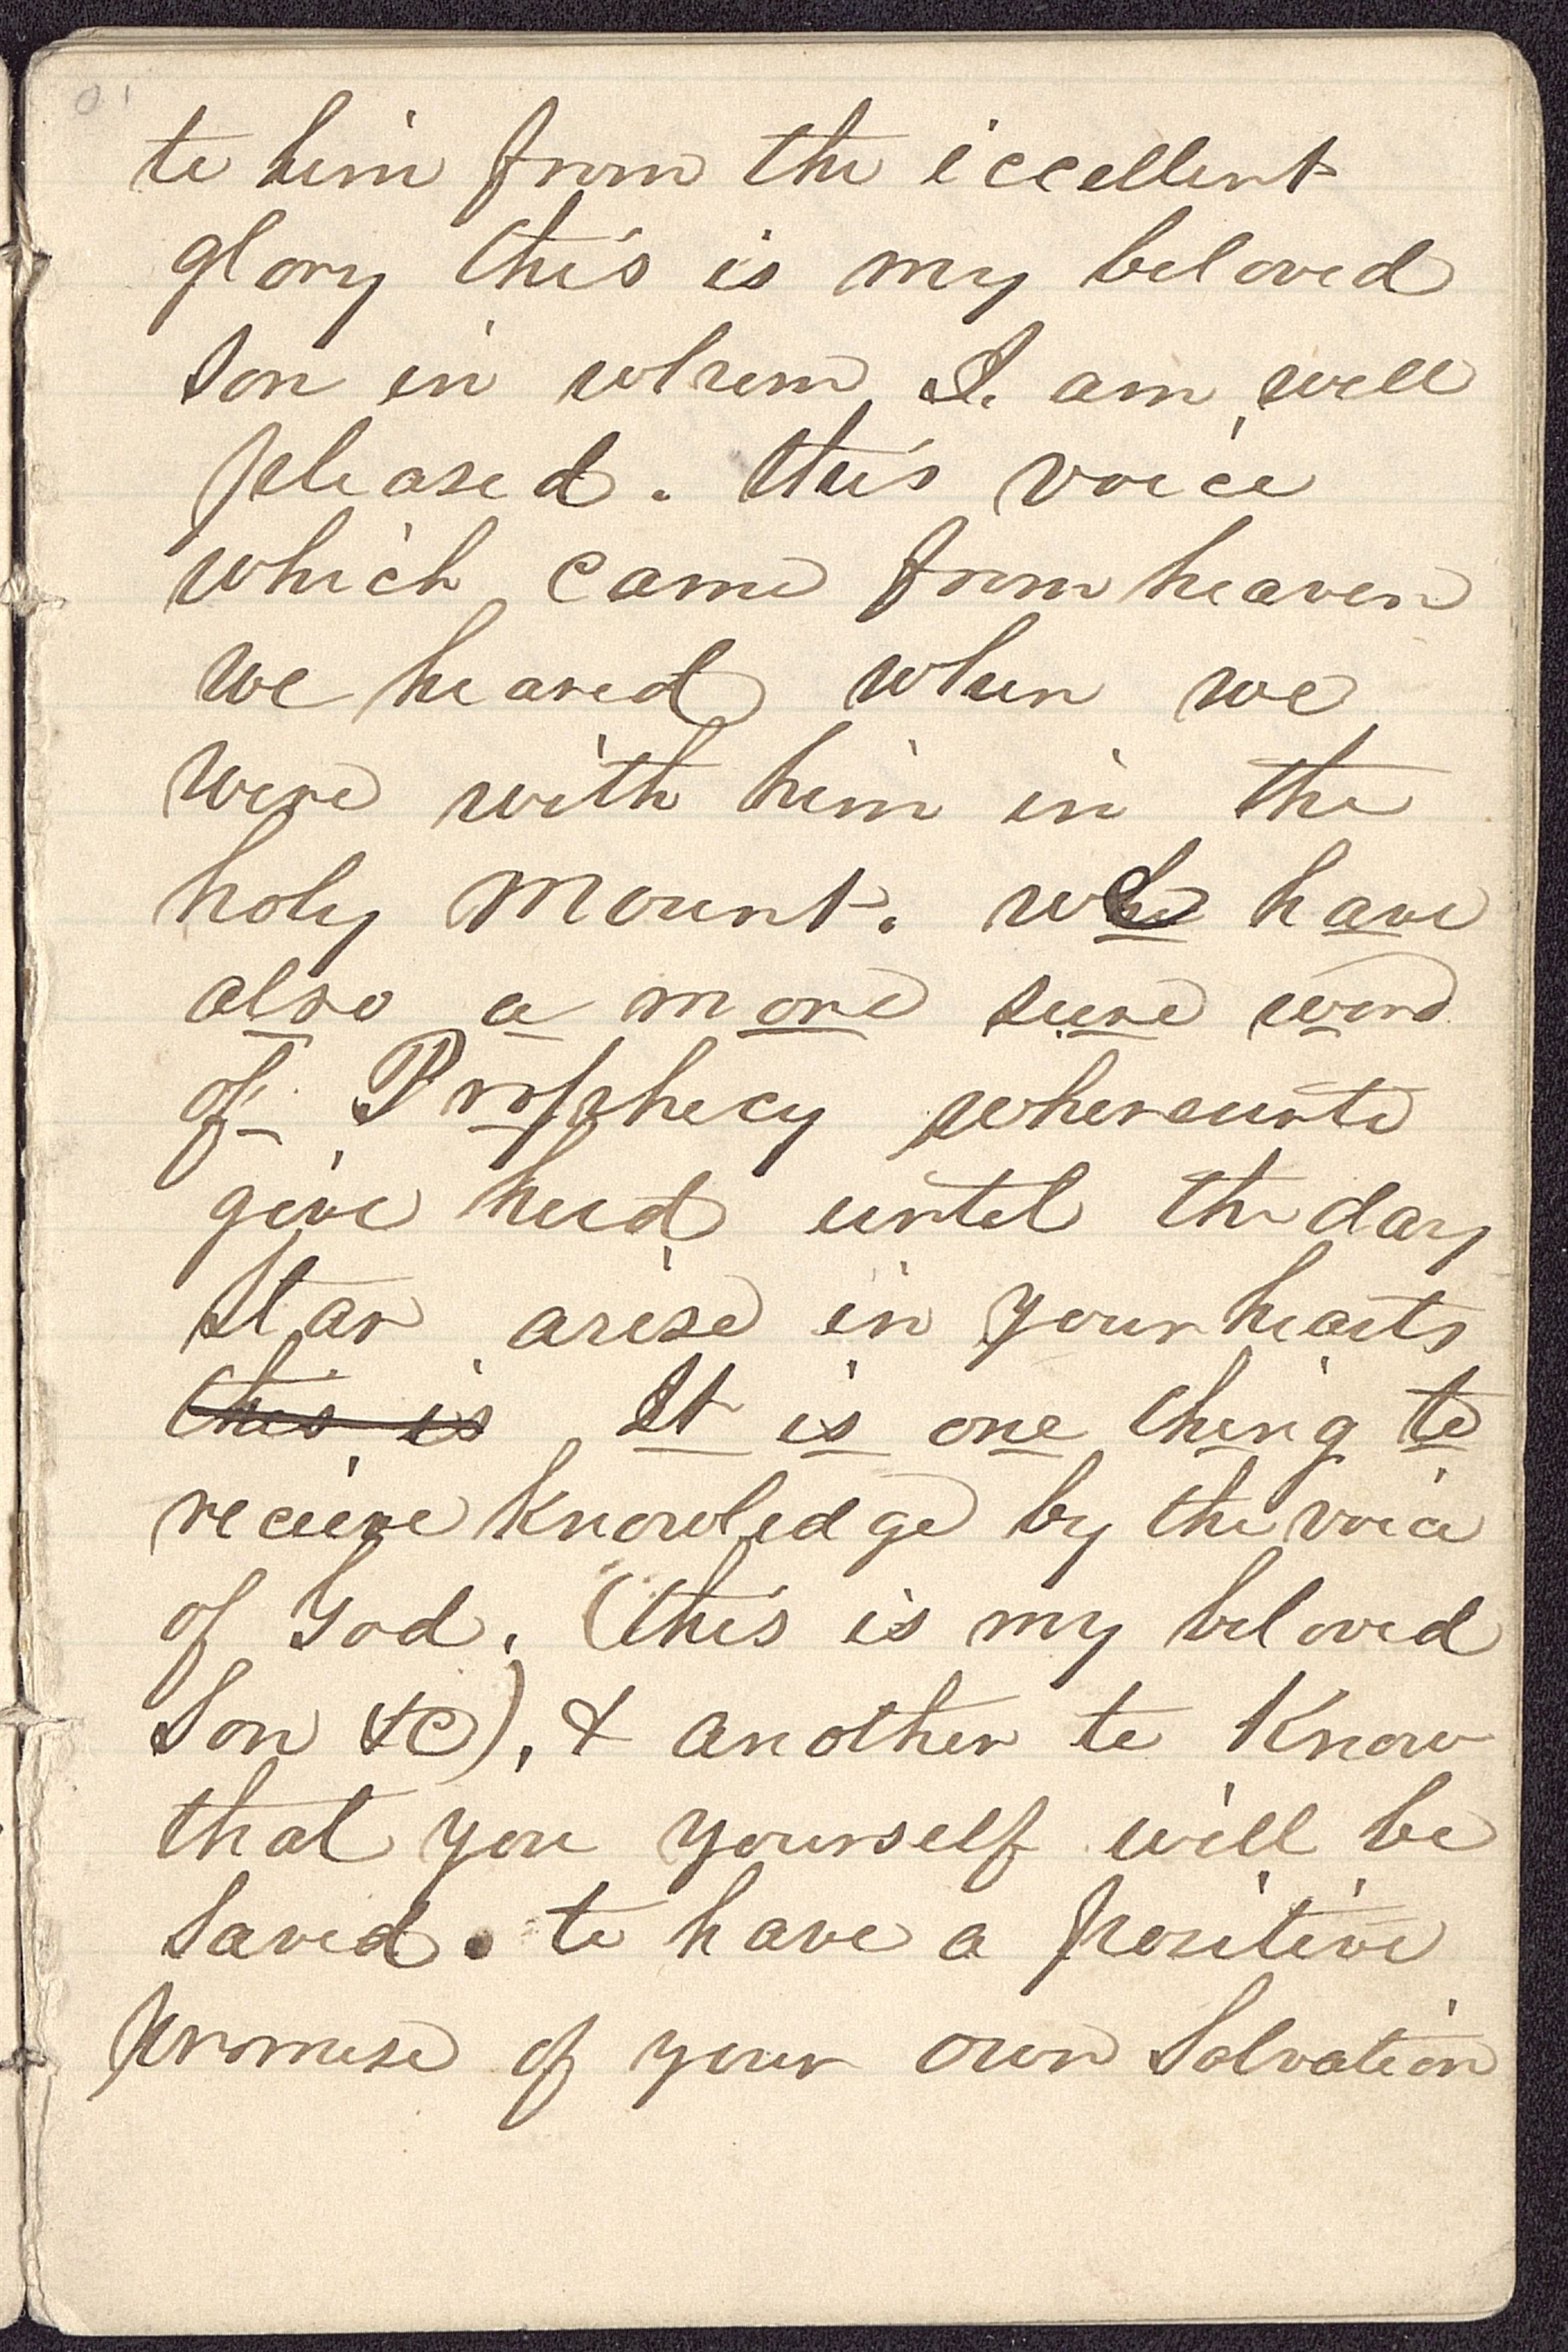 to him from the iccellent
glory this is my beloved
Son in whom I. am well
pleased. this voice
which came from heaven
we heared when we
were with him in the
holy Mount. we have
also a more sure word
of Prophecy whereunto
give heed until the day
Star arise in your hearts
this is It is one thing to
recieve knowledge by the voice
of God, (this is my beloved
Son &c), & another to Know
that you yourself will be
Saved. to have a positive
promise of your own Salvation